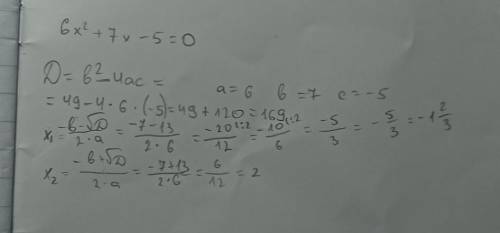 6x² + 7x - 5 = 0
D = b² - 4ac =
a = 6 b = 7 c = -5
= 49 - 4 · 6 · (-5) = 49 + 120 = 169
x₁ = (-b - √D)/(2 · a) = (-7 - 13)/(2 · 6) = (-20 :2)/12 = (-10 :2)/6 = (-5)/3 = -5/3 = -1 2/3
x₂ = (-b + √D)/(2 · a) = (-7 + 13)/(2 · 6) = 6/12 = 2